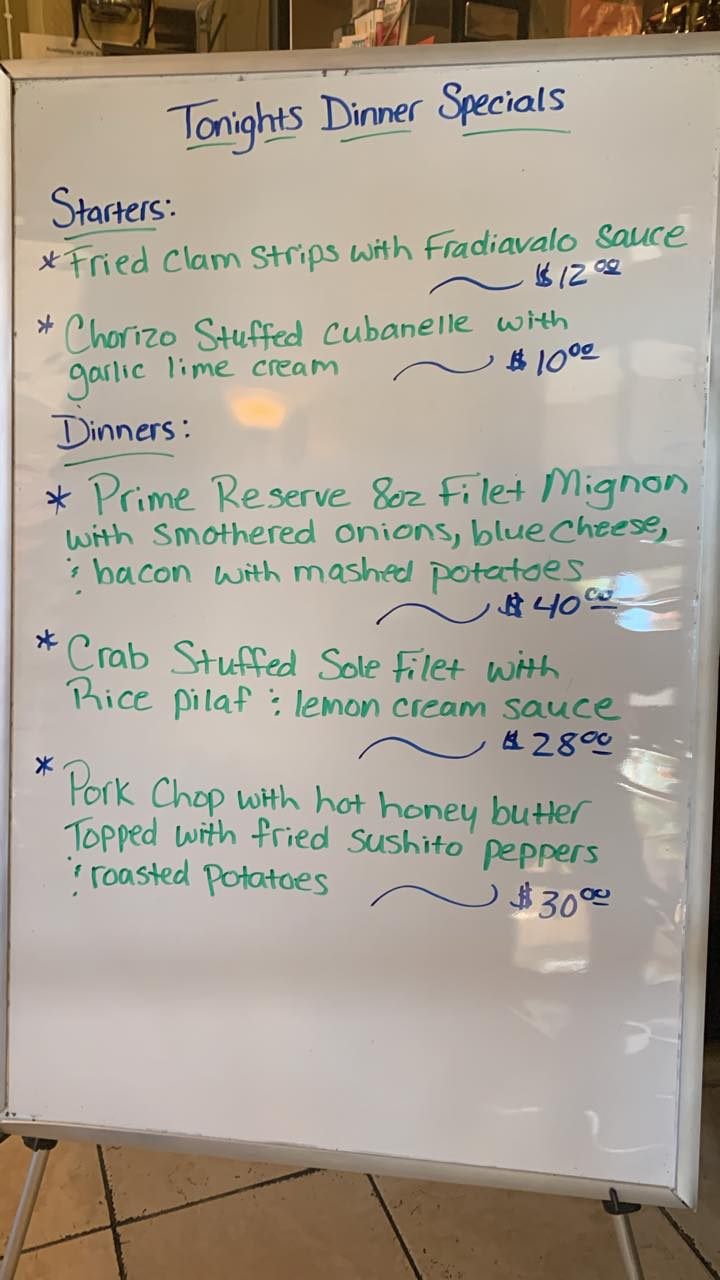 Tonights Dinner Specials
Starters:
* Fried Clam Strips with Fradiavalo Sauce
$12.00
* Chorizo Stuffed Cubanelle with
garlic lime cream $10.00
Dinners:
* Prime Reserve 8oz Filet Mignon
with smothered onions, blue cheese,
& bacon with mashed potatoes
$40.00
* Crab Stuffed Sole Filet with
Rice pilaf & lemon cream sauce
$28.00
* Pork Chop with hot honey butter
Topped with fried Sushito peppers
& roasted potatoes $30.00